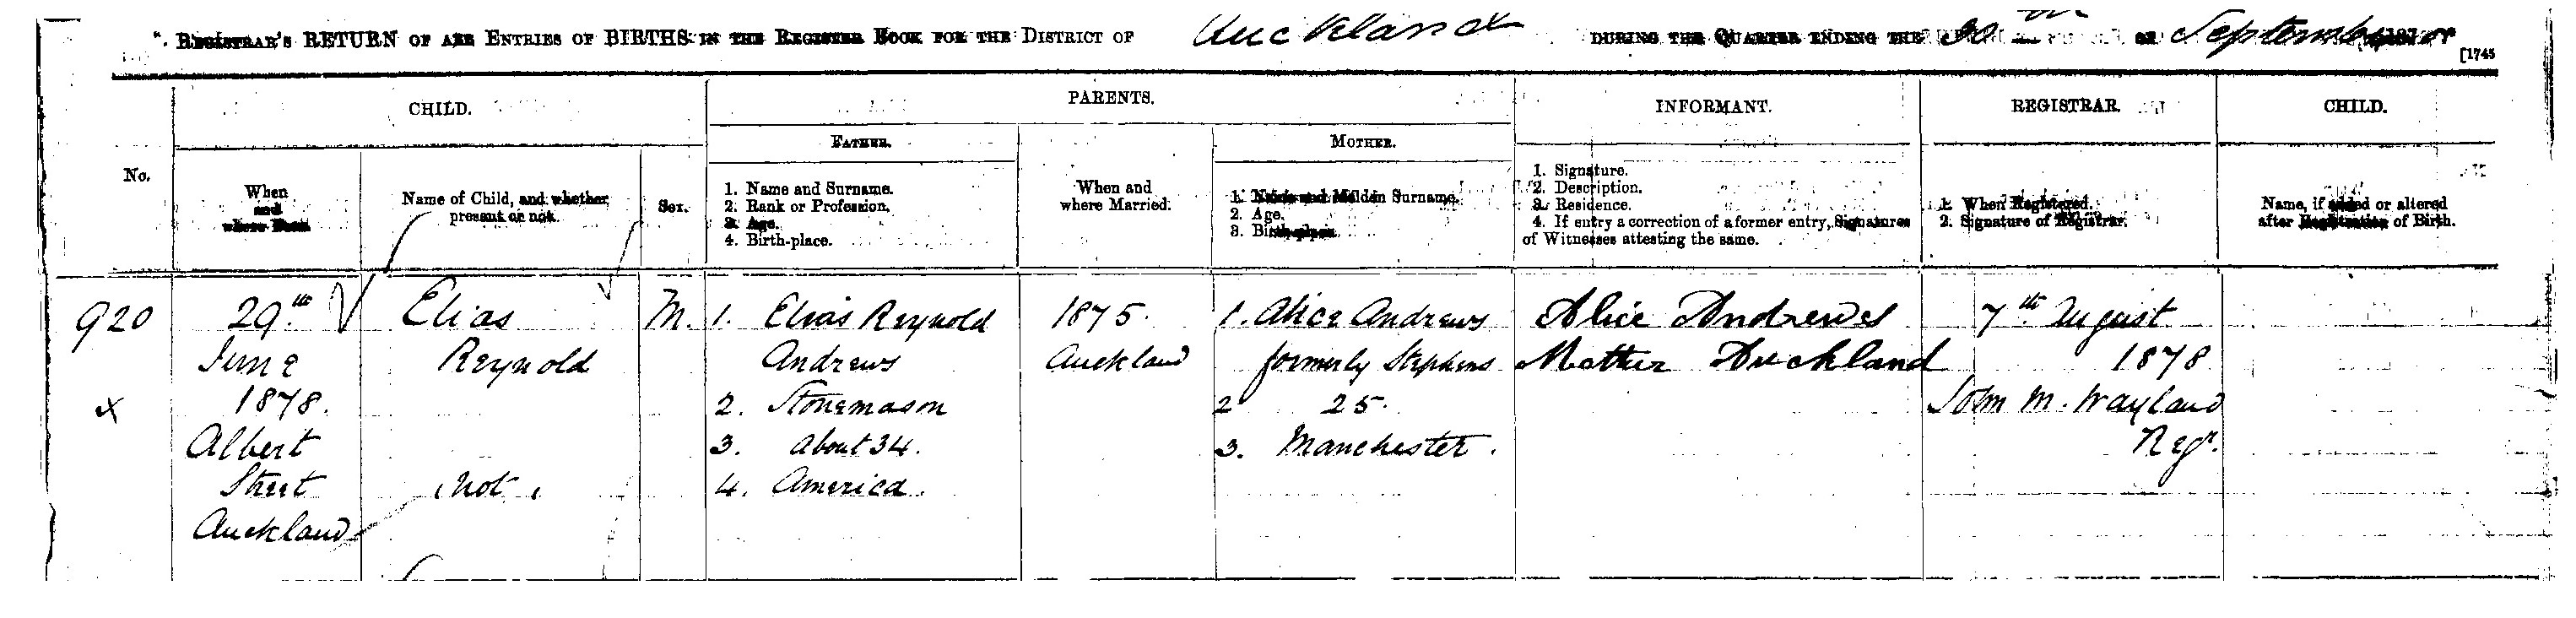 REGISTRAR'S RETURN OF ALL ENTRIES OF BIRTHS IN THE REGISTER BOOK FOR THE DISTRICT OF Auckland DURING THE QUARTER ENDING THE 30th OF September 187
[1745
CHILD. PARENTS. INFORMANT. REGISTRAR. CHILD.
FATHER. MOTHER.
No.
When
and
where Born.
Name of Child, and whether
present or not.
Sex.
1. Name and Surname.
2. Rank or Profession.
3. Age.
4. Birth-place.
When and
where Married.
1. Name and Maiden Surname.
2. Age.
3. Birth-place.
1. Signature.
2. Description.
3. Residence.
4. If entry a correction of a former entry, Signatures
of Witnesses attesting the same.
1. When Registered.
2. Signature of Registrar.
Name, if added or altered
after Registration of Birth.
920
x
29th
June
1878.
Albert
Street
Auckland
Elias
Reynold
Not
M.
1. Elias Reynold
Andrews
2. Stonemason
3. About 34.
4. America.
1875.
Auckland
1. Alice Andrews
formerly Stephens
2 25.
3. Manchester.
Alice Andrews
Mother Auckland
7th August
1878
John M. Wayland
Regr.